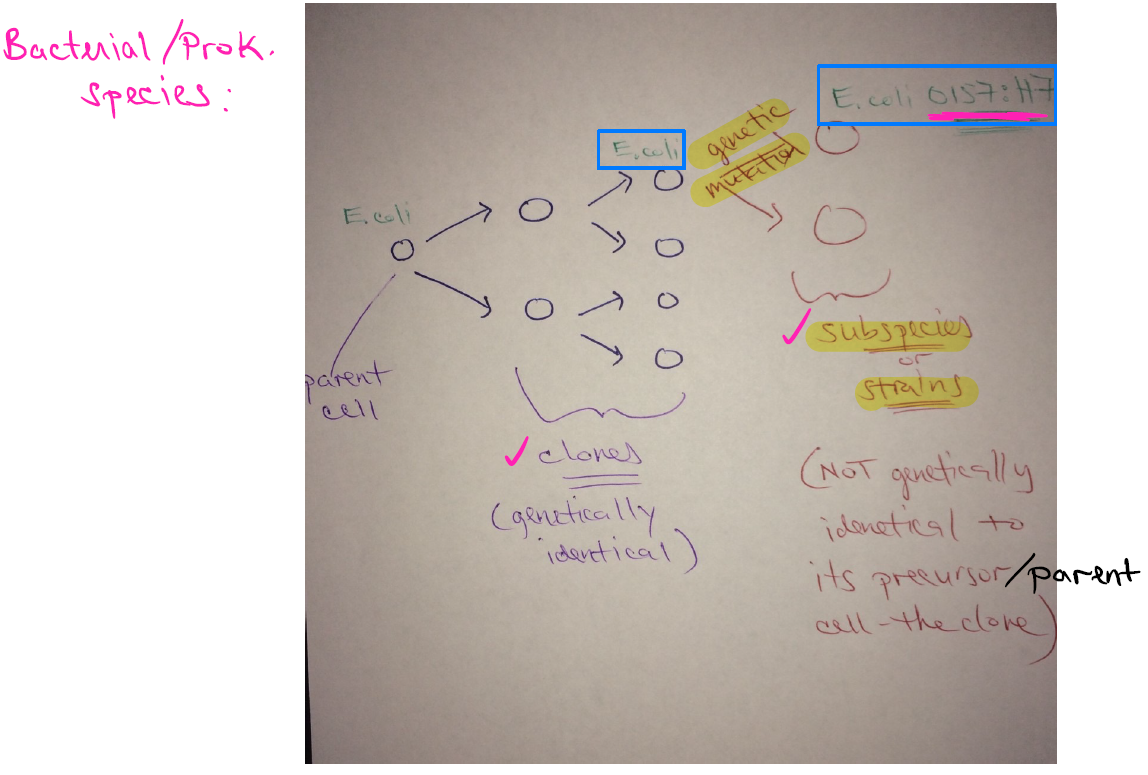 Bacterial/Prok.
species:
E. coli O157:H7
E. coli
genetic
mutation
E. coli
parent
cell
clones
(genetically
identical)
subspecies
or
strains
(NOT genetically
idenetical to
its precursor/parent
cell-the clone)